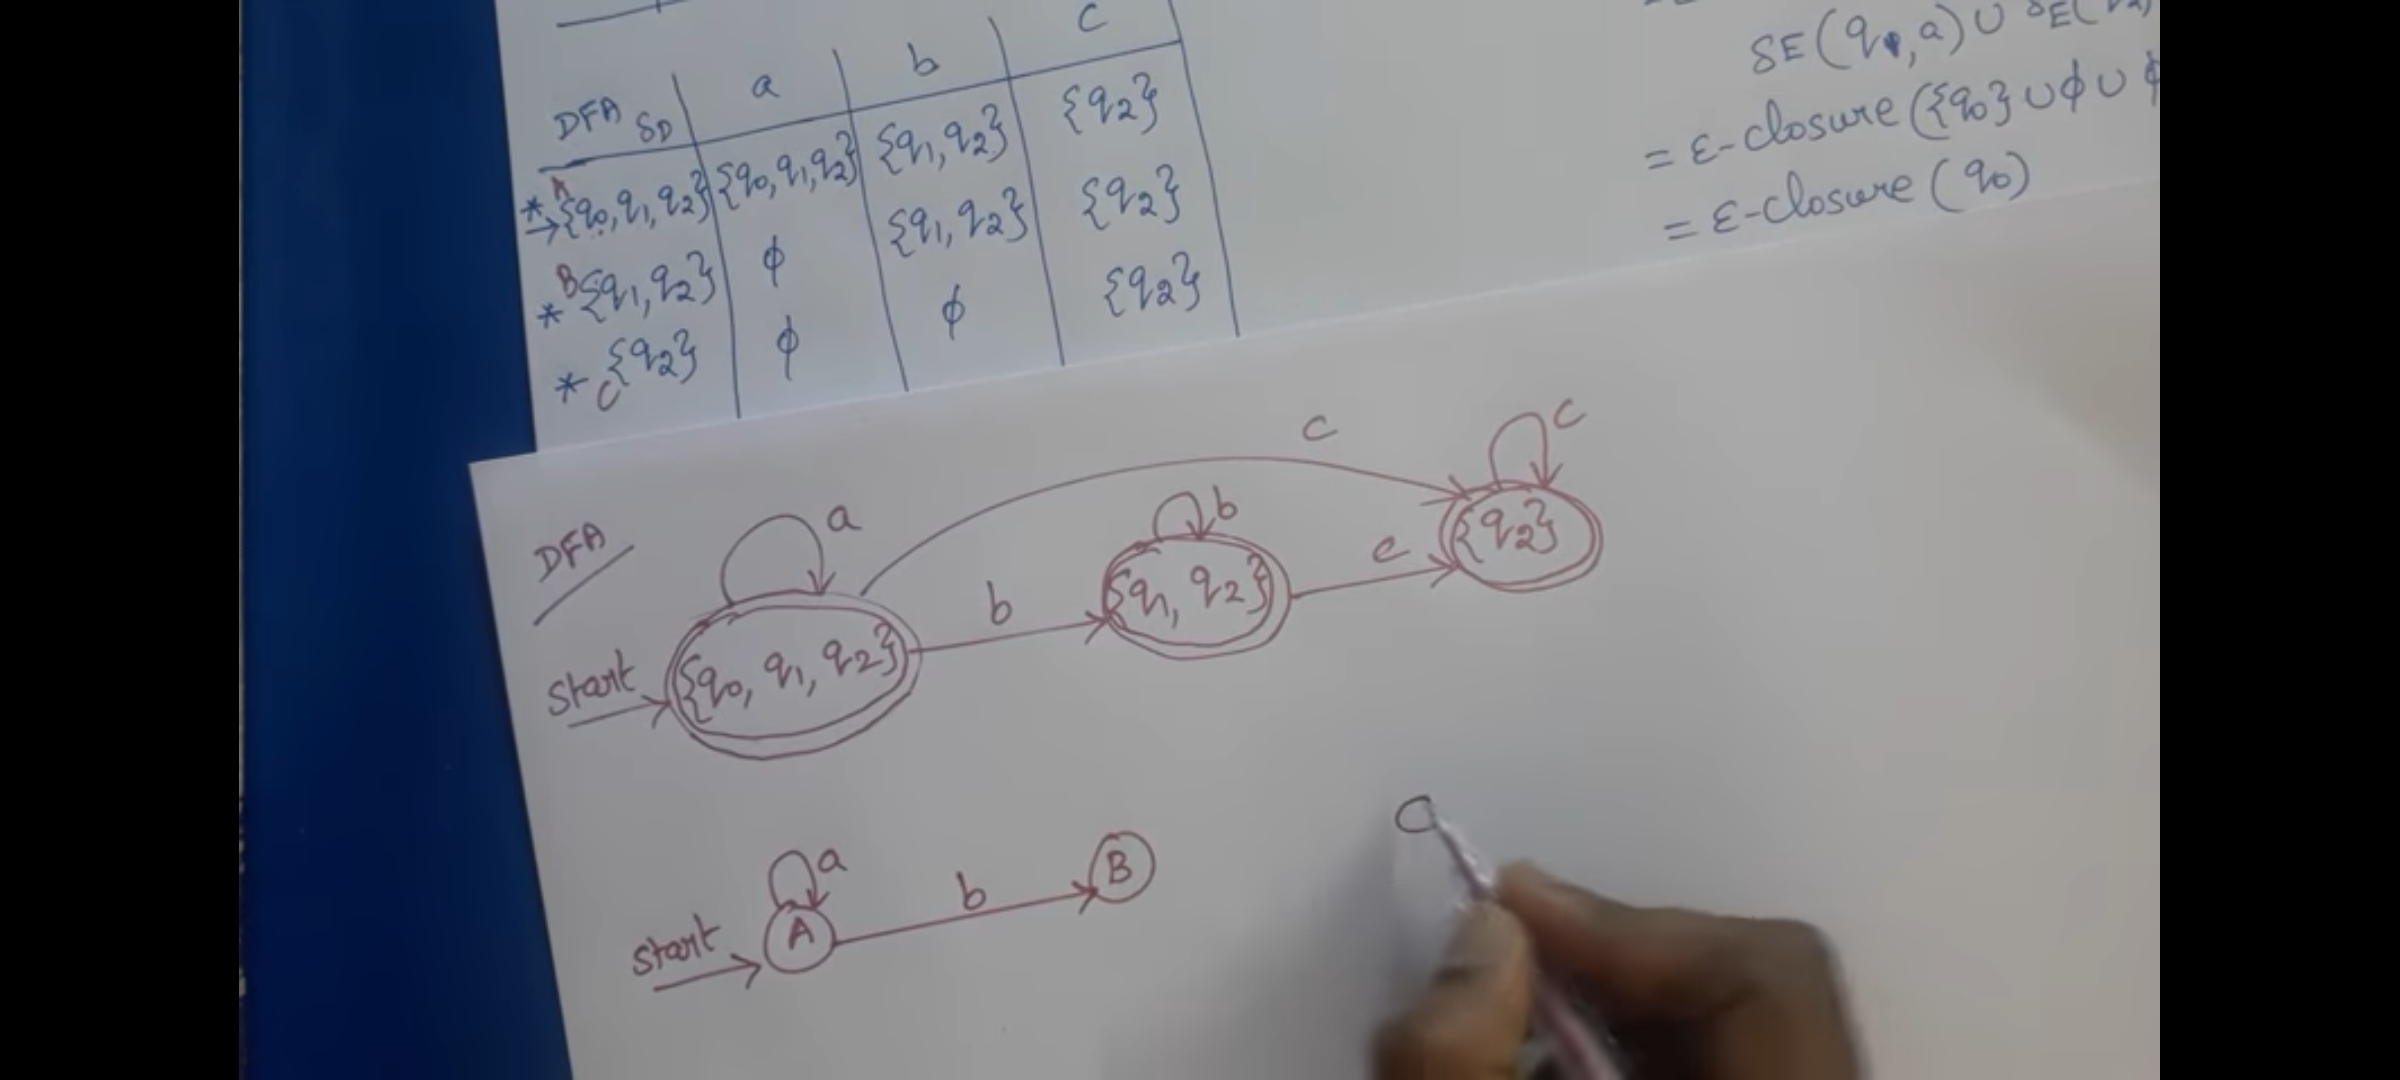 DFA δD a b c
*→ A {q0, q1, q2} {q0, q1, q2} {q1, q2} {q2}
* B {q1, q2} ϕ {q1, q2} {q2}
* C {q2} ϕ ϕ {q2}
δE(q , a) ∪ δE(
= ε-closure ({q0} ∪ ϕ ∪ ϕ
= ε-closure (q0)
DFA
a b c b c c
start {q0, q1, q2} {q1, q2} {q2}
a b
start A B